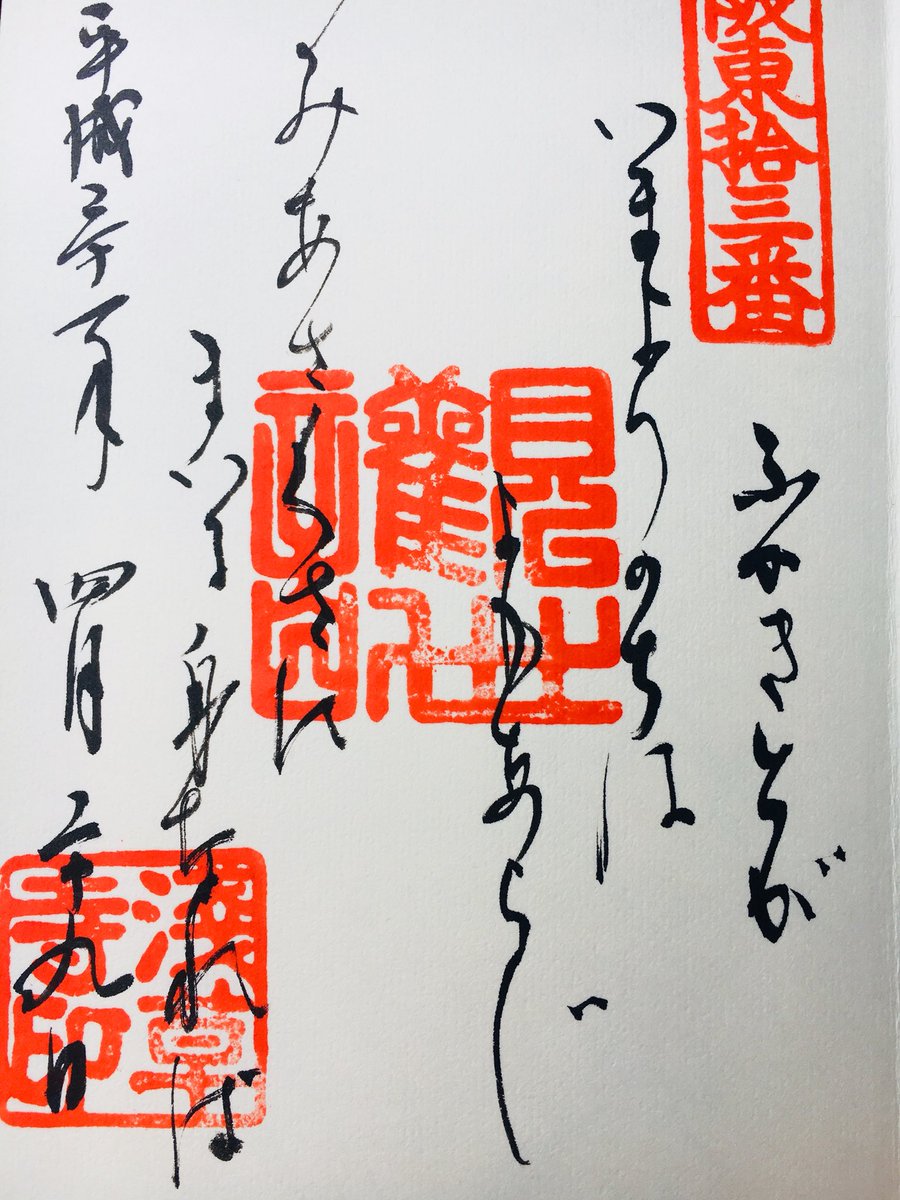 東拾三番
ふかきとが
いまよりのちは
よもあらじ
みあさくさに
まいる身なれば
平成三十一年四月二十九日
淺草寺印